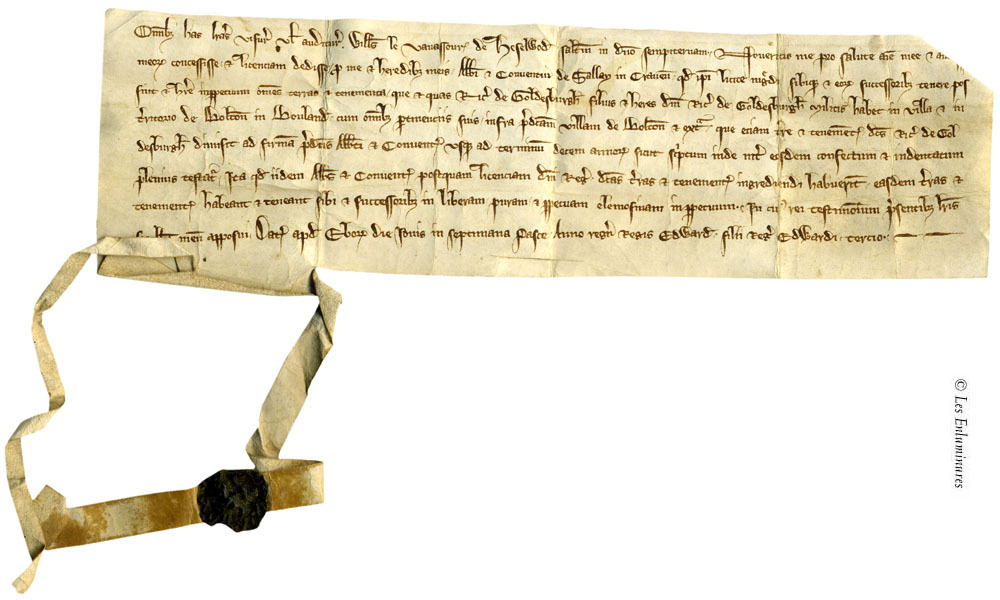 Omib; has lras visur̄ ul̓ auditur̄. Wills le Vauasseur de Heselwod salt̄m in dn̄o sempiternam. Noueritis me pro salute aīe mee &
meor̄ concessisse & licenciam dedisse p̱ me & heredib; meis Abbi & Conuentui de Sallay in Crauen qd̄ ip̄i licite sibiq; & eor̄ successorib; tenere pos
sint & hr̄e inp̱petuum om̄es terras & tenementa que & quas Ric̄ de Goldesburgh filius & heres dn̄i Ric̄ de Goldesburgh Militis habet in villa & in
t̄ritorio de Bolton in Bouland cum om̄ib; p̱tinenciis suis infra p̄dc̄am villam de Bolton & ext̄ que eciam t̄re & tenement̄ dc̄s Ric̄ de Gol
desburgh dimisit ad firmam p̄dc̄is Abbi & Conuent̄ vsq; ad terminum decem annor̄ sicut sc̄ptum inde int̄ eosdem confectum & indentatum
plenius testat̄. Ita qd̄ iidem Abb̄s & Conuent̄ postquam licenciam dn̄i Reḡ dc̄as t̄ras & tenement̄ ingrediendi habuerīt easdem t̄ras &
tenement̄ habeant & teneant sibi & successorib; in liberam puram & p̱petuam elemosinam in p̱petuum. In cui᾽ rei testimonium p̄sentib; lr̄is
meū apposui. Dat̄ apd̄ Ebor̄ die Iouis in septimana Pasce Anno regn̄ Regis Edward̄ filii Reḡ Edwardi tercio.
© Les Enluminures